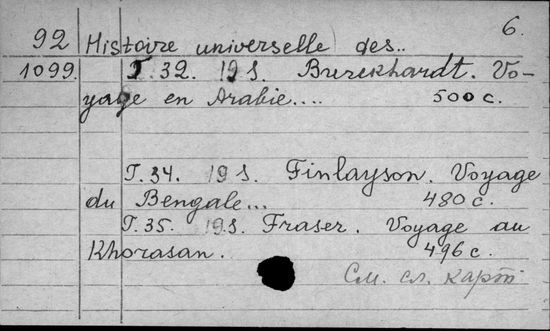 6.
92 Histoire universelle des..
1099. T. 32. 19 s. Burckhardt. Vo-
yage en Arabie.... 500 с.
T. 34. 19 s. Finlayson. Voyage
du Bengale... 480 с.
T. 35. 19 s. Fraser. Voyage au
Khorasan. 496 с.
См. сл. карт